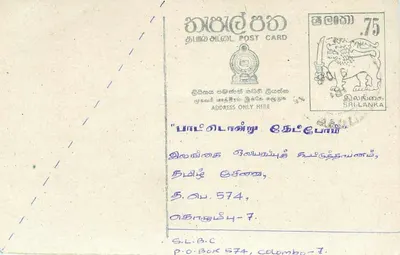 තැපැල් පත
தபால் அட்டை POST CARD
ශ්‍රී ලංකා .75
இலங்கை
SRI LANKA
ලිපිනය පමණක් මෙහි ලියන්න
முகவரி மாத்திரம் இங்கே எழுதுக
ADDRESS ONLY HERE
"பாட்டொன்று கேட்போம்"
இலங்கை ஒலிபரப்புக் கூட்டுத்தாபனம்,
தமிழ் சேவை,
த. பெ. 574,
கொழும்பு-7.
S.L.B.C
P.O.BOX 574, Colombo-7.